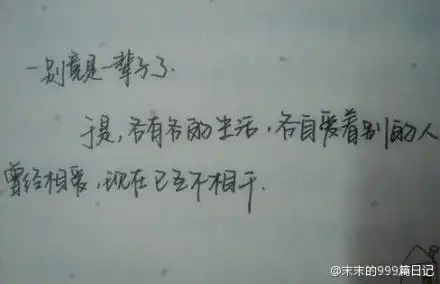 一别竟是一辈子了.
于是,各有各的生活,各自爱着别的人
曾经相爱,现在已互不相干.
@末末的999篇日记